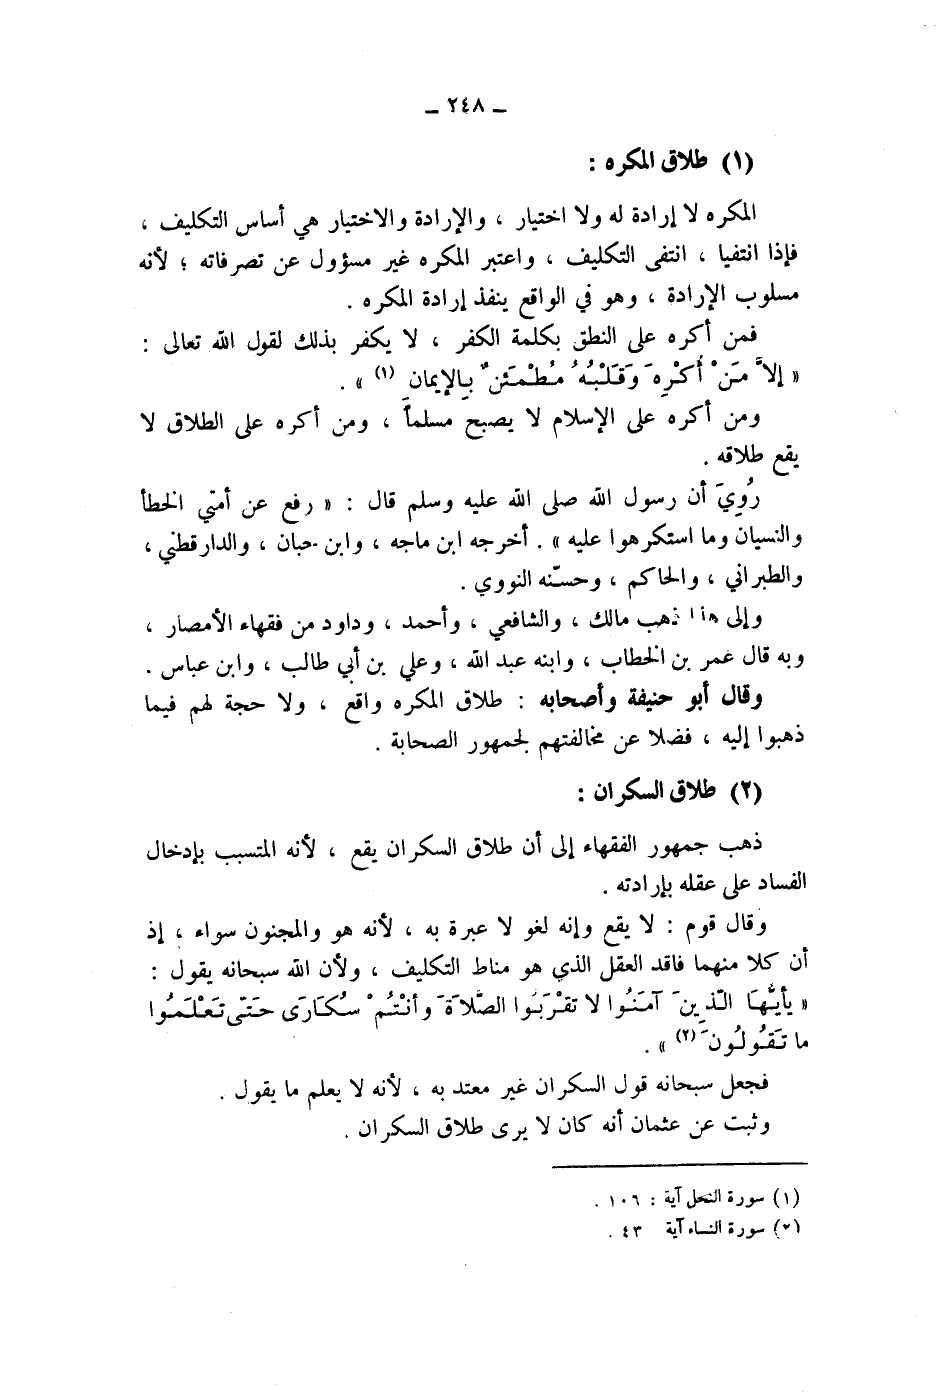 ـ ٢٤٨ ـ
(١) طلاق المكره :
المكره لا إرادة له ولا اختيار ، والإرادة والاختيار هي أساس التكليف ،
فإذا انتفيا ، انتفى التكليف ، واعتبر المكره غير مسؤول عن تصرفاته ؛ لأنه
مسلوب الإرادة ، وهو في الواقع ينفذ إرادة المكره .
فمن أكره على النطق بكلمة الكفر ، لا يكفر بذلك لقول الله تعالى :
« إلاَّ مَنْ أُكْرِهَ وَقَلْبُهُ مُطْمَئِنٌ بِالإيمانِ (١) » .
ومن أكره على الإسلام لا يصبح مسلماً ، ومن أكره على الطلاق لا
يقع طلاقه .
رُوِيَ أن رسول الله صلى الله عليه وسلم قال : « رفع عن أمتي الخطأ
والنسيان وما استكرهوا عليه » . أخرجه ابن ماجه ، وابن حبان ، والدارقطني ،
والطبراني ، والحاكم ، وحسّنه النووي .
وإلى هذا ذهب مالك ، والشافعي ، وأحمد ، وداود من فقهاء الأمصار ،
وبه قال عمر بن الخطاب ، وابنه عبد الله ، وعلي بن أبي طالب ، وابن عباس .
وقال أبو حنيفة وأصحابه : طلاق المكره واقع ، ولا حجة لهم فيما
ذهبوا إليه ، فضلا عن مخالفتهم لجمهور الصحابة .
(٢) طلاق السكران :
ذهب جمهور الفقهاء إلى أن طلاق السكران يقع ، لأنه المتسبب بإدخال
الفساد على عقله بإرادته .
وقال قوم : لا يقع وإنه لغو لا عبرة به ، لأنه هو والمجنون سواء ، إذ
أن كلا منهما فاقد العقل الذي هو مناط التكليف ، ولأن الله سبحانه يقول :
« يأَيُّهَا الّذِينَ آمَنُوا لا تقْرَبُوا الصَّلاَةَ وأنْتُمْ سُكَارَى حَتّى تَعْلَمُوا
ما تَقُولُونَ (٢) » .
فجعل سبحانه قول السكران غير معتد به ، لأنه لا يعلم ما يقول .
وثبت عن عثمان أنه كان لا يرى طلاق السكران .
(١) سورة النحل آية : ١٠٦ .
(٢) سورة النساء آية ٤٣ .